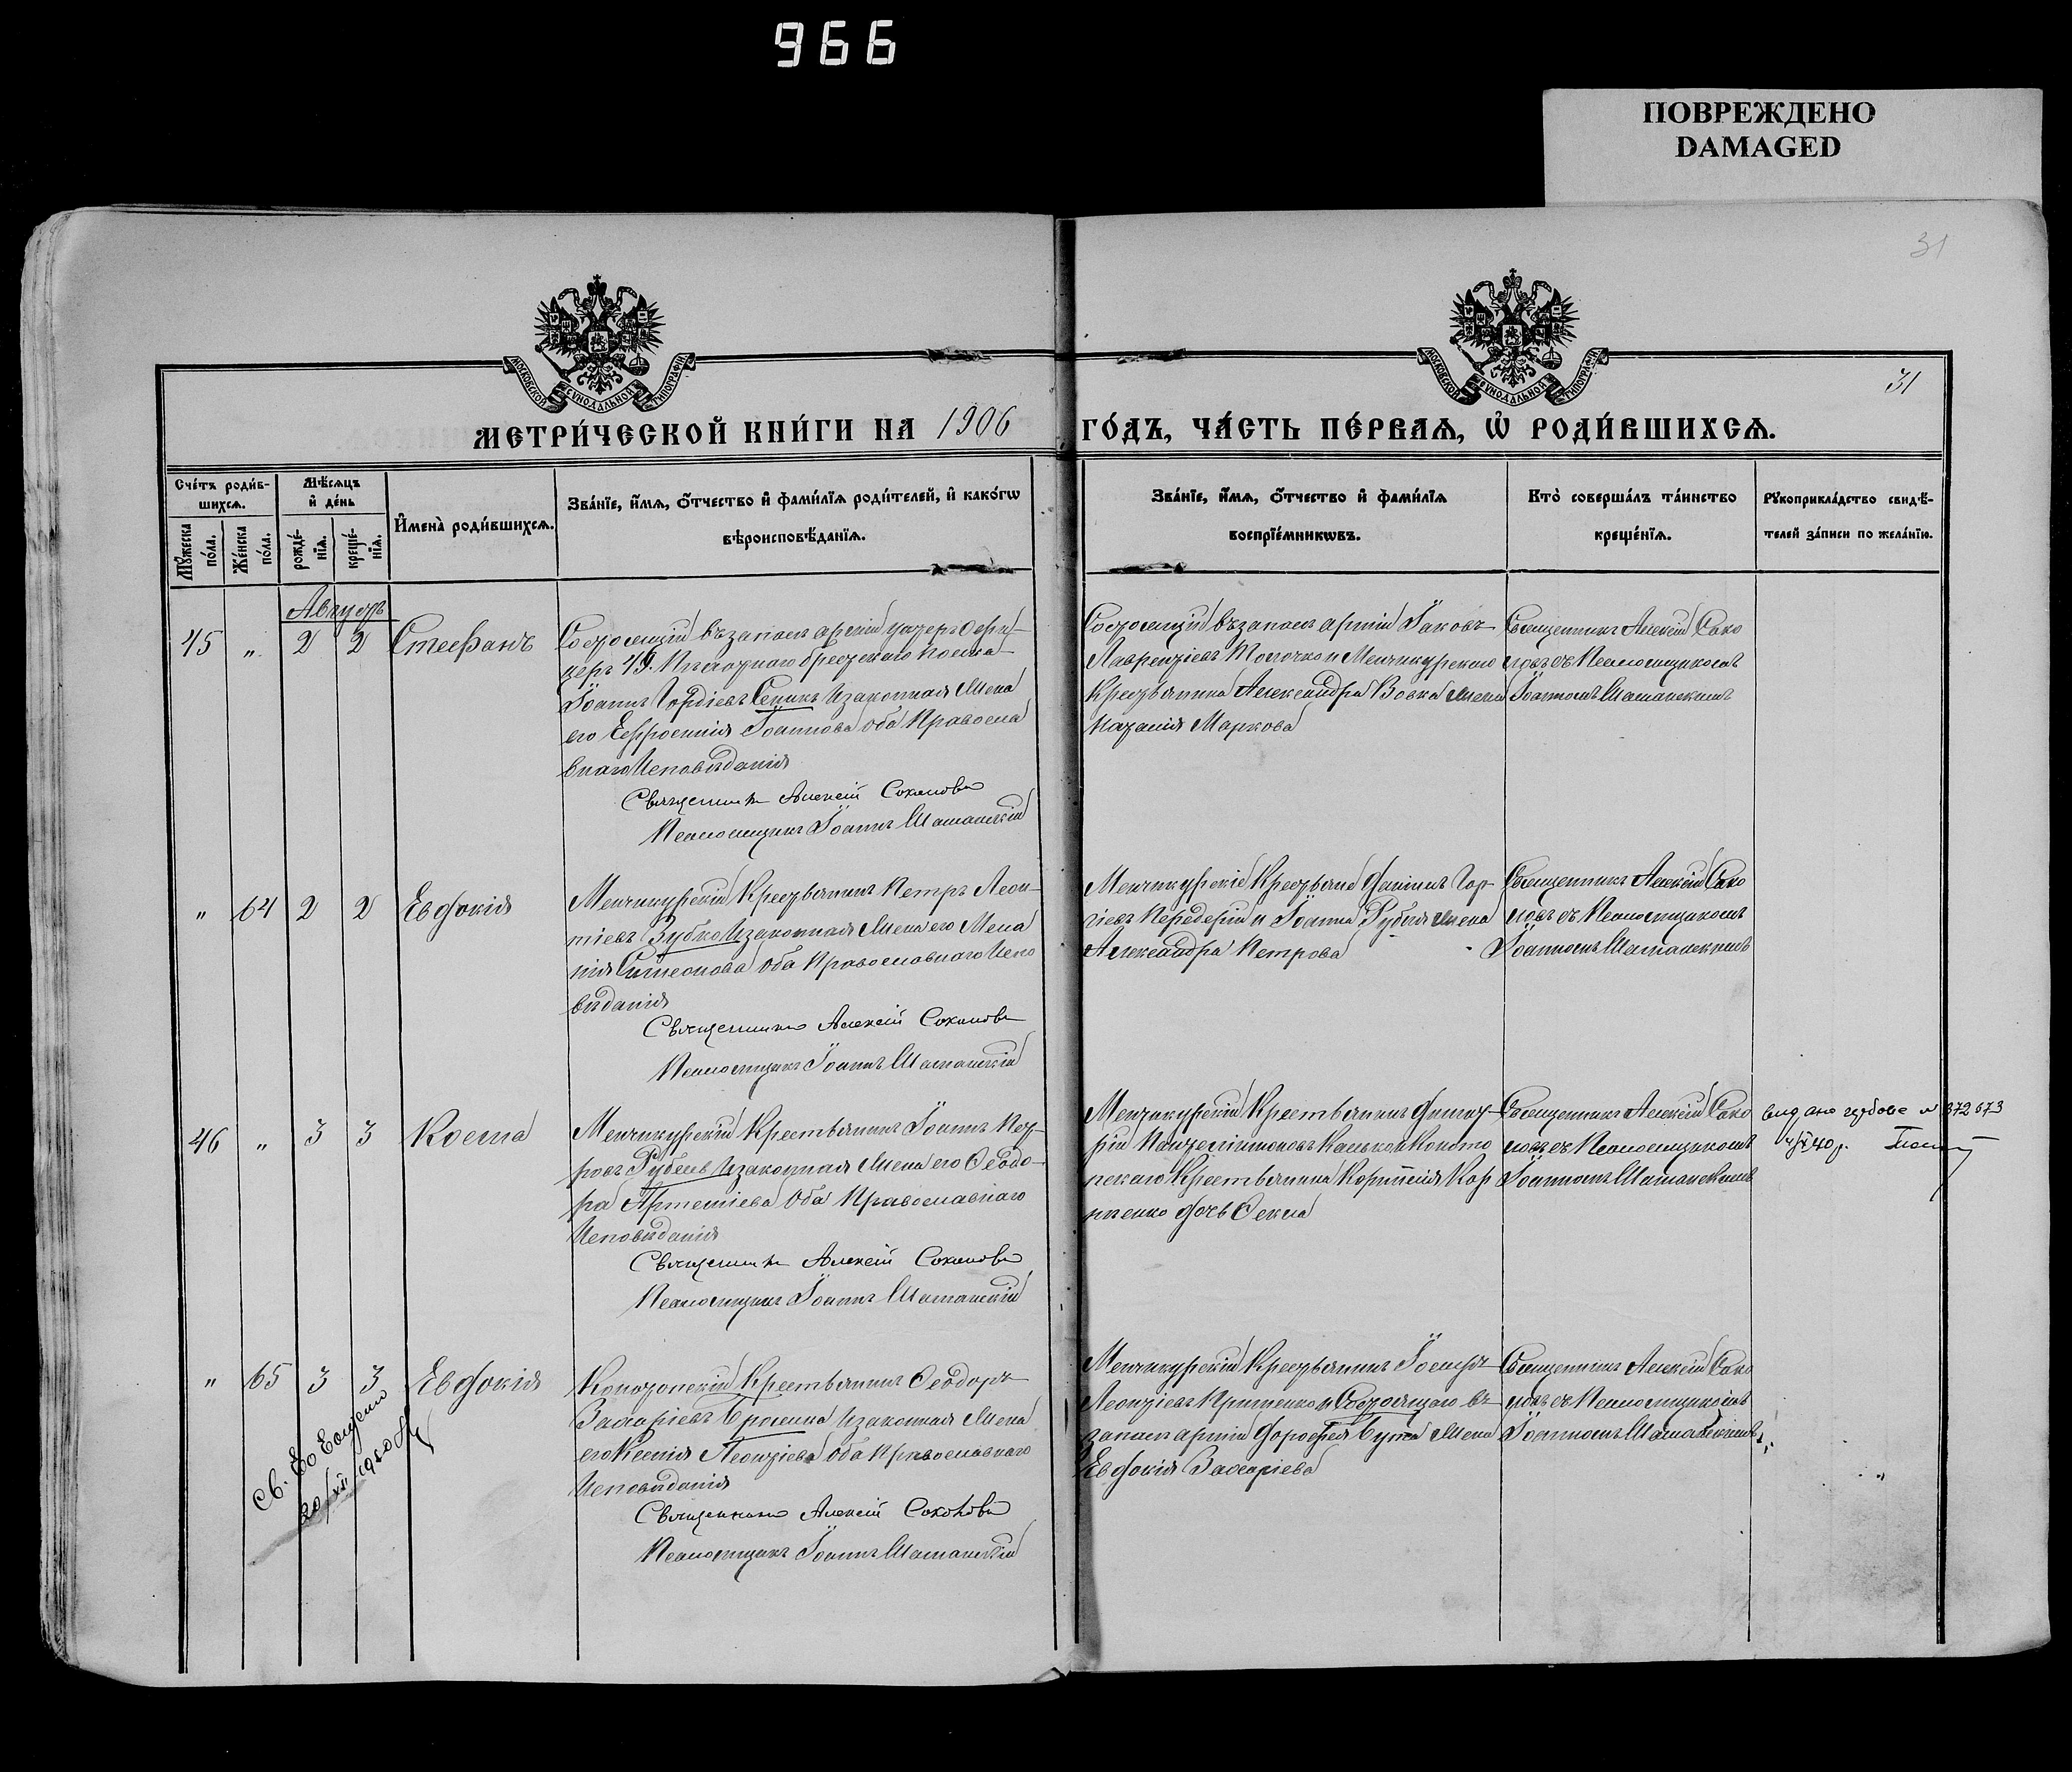 966
ПОВРЕЖДЕНО
DAMAGED
31
МОСКОВСКОЙ СѴНОДАЛЬНОЙ ТИПОГРАФІИ
МОСКОВСКОЙ СѴНОДАЛЬНОЙ ТИПОГРАФІИ
31
МЕТРИ́ЧЕСКОЙ КНИ́ГИ НА 1906 ГО́ДЪ, ЧА́СТЬ ПЕ́РВАѦ, Ѡ҆ РОДИ́ВШИХСѦ.
Сче́тъ роди́в-
шихсѧ.
Мꙋ́жеска по́ла.
Же́нска по́ла.
Мѣ́сѧцъ
и҆ де́нь
рожде́-нїѧ.
креще́-нїѧ.
И҆мена̀ роди́вшихсѧ.
Зва́нїе, и҆́мѧ, ѻ҆́тчество и҆ фами́лїѧ роди́телей, и҆ како́гѡ
вѣроисповѣ́данїѧ.
Зва́нїе, и҆́мѧ, ѻ҆́тчество и҆ фами́лїѧ
воспрїе́мникѡвъ.
Кто̀ соверша́лъ та́инство
креще́нїѧ.
Рꙋкоприкла́дство свидѣ́-
телей за́писи по жела́нїю.
Августъ
45 " 2 2 Стефанъ
Состоящій въ запасѣ арміи унтеръ офи-
церъ 49. Пѣхотнаго брестскаго полка
Іоаннъ Гордіевъ Сеникъ и законная жена
его Евфросинія Іоаннова оба Правосла
внаго Исповѣданія
Священникъ Алексій Соколовъ
Псаломщикъ Іоаннъ Шаманскій
Состоящій въ запасѣ арміи Іаковъ
Лаврентіевъ Толочко и Менчикурскаго
Крестьянина Александра Вовка жена
Наталія Маркова
Священникъ Алексій Соко
ловъ съ Псаломщикомъ
Іоанномъ Шаманскимъ
" 64 2 2 Евдокія
Менчикурскій Крестьянинъ Петръ Леон-
тіевъ Зубко и законная жена его Мела
нія Симеонова оба Православнаго Испо
вѣданія
Священникъ Алексій Соколовъ
Псаломщикъ Іоаннъ Шаманскій
Менчикурскіе Крестьяне Даніилъ Гор-
діевъ Передерій и Іоанна Рубля жена
Александра Петрова
Священникъ Алексій Соко
ловъ съ Псаломщикомъ
Іоанномъ Шаманскимъ
46 " 3 3 Косма
Менчикурскій Крестьянинъ Іоаннъ Пет-
ровъ Рубель и законная жена его Ѳеодо-
ра Артеміева оба Православнаго
Исповѣданія
Священникъ Алексій Соколовъ
Псаломщикъ Іоаннъ Шаманскій
Менчикурскій Крестьянинъ Димит-
рій Пантелеімоновъ Касько и Коното
пскаго Крестьянина Корнилія Кор
ніенко дочь Ѳекла
Священникъ Алексій Соко
ловъ съ Псаломщикомъ
Іоанномъ Шаманскимъ
" 65 3 3 Евдокія
20/XII 1950
Конотопскій Крестьянинъ Ѳеодоръ
Захаріевъ и законная жена
его Ксенія Леонтіева оба Православнаго
Исповѣданія
Священникъ Алексій Соколовъ
Псаломщикъ Іоаннъ Шаманскій
Менчикурскій Крестьянинъ Іосифъ
Леонтіевъ и Состоящаго въ
запасѣ арміи Дорофея Бута жена
Евдокія Захаріева
Священникъ Алексій Соко
ловъ съ Псаломщикомъ
Іоанномъ Шаманскимъ